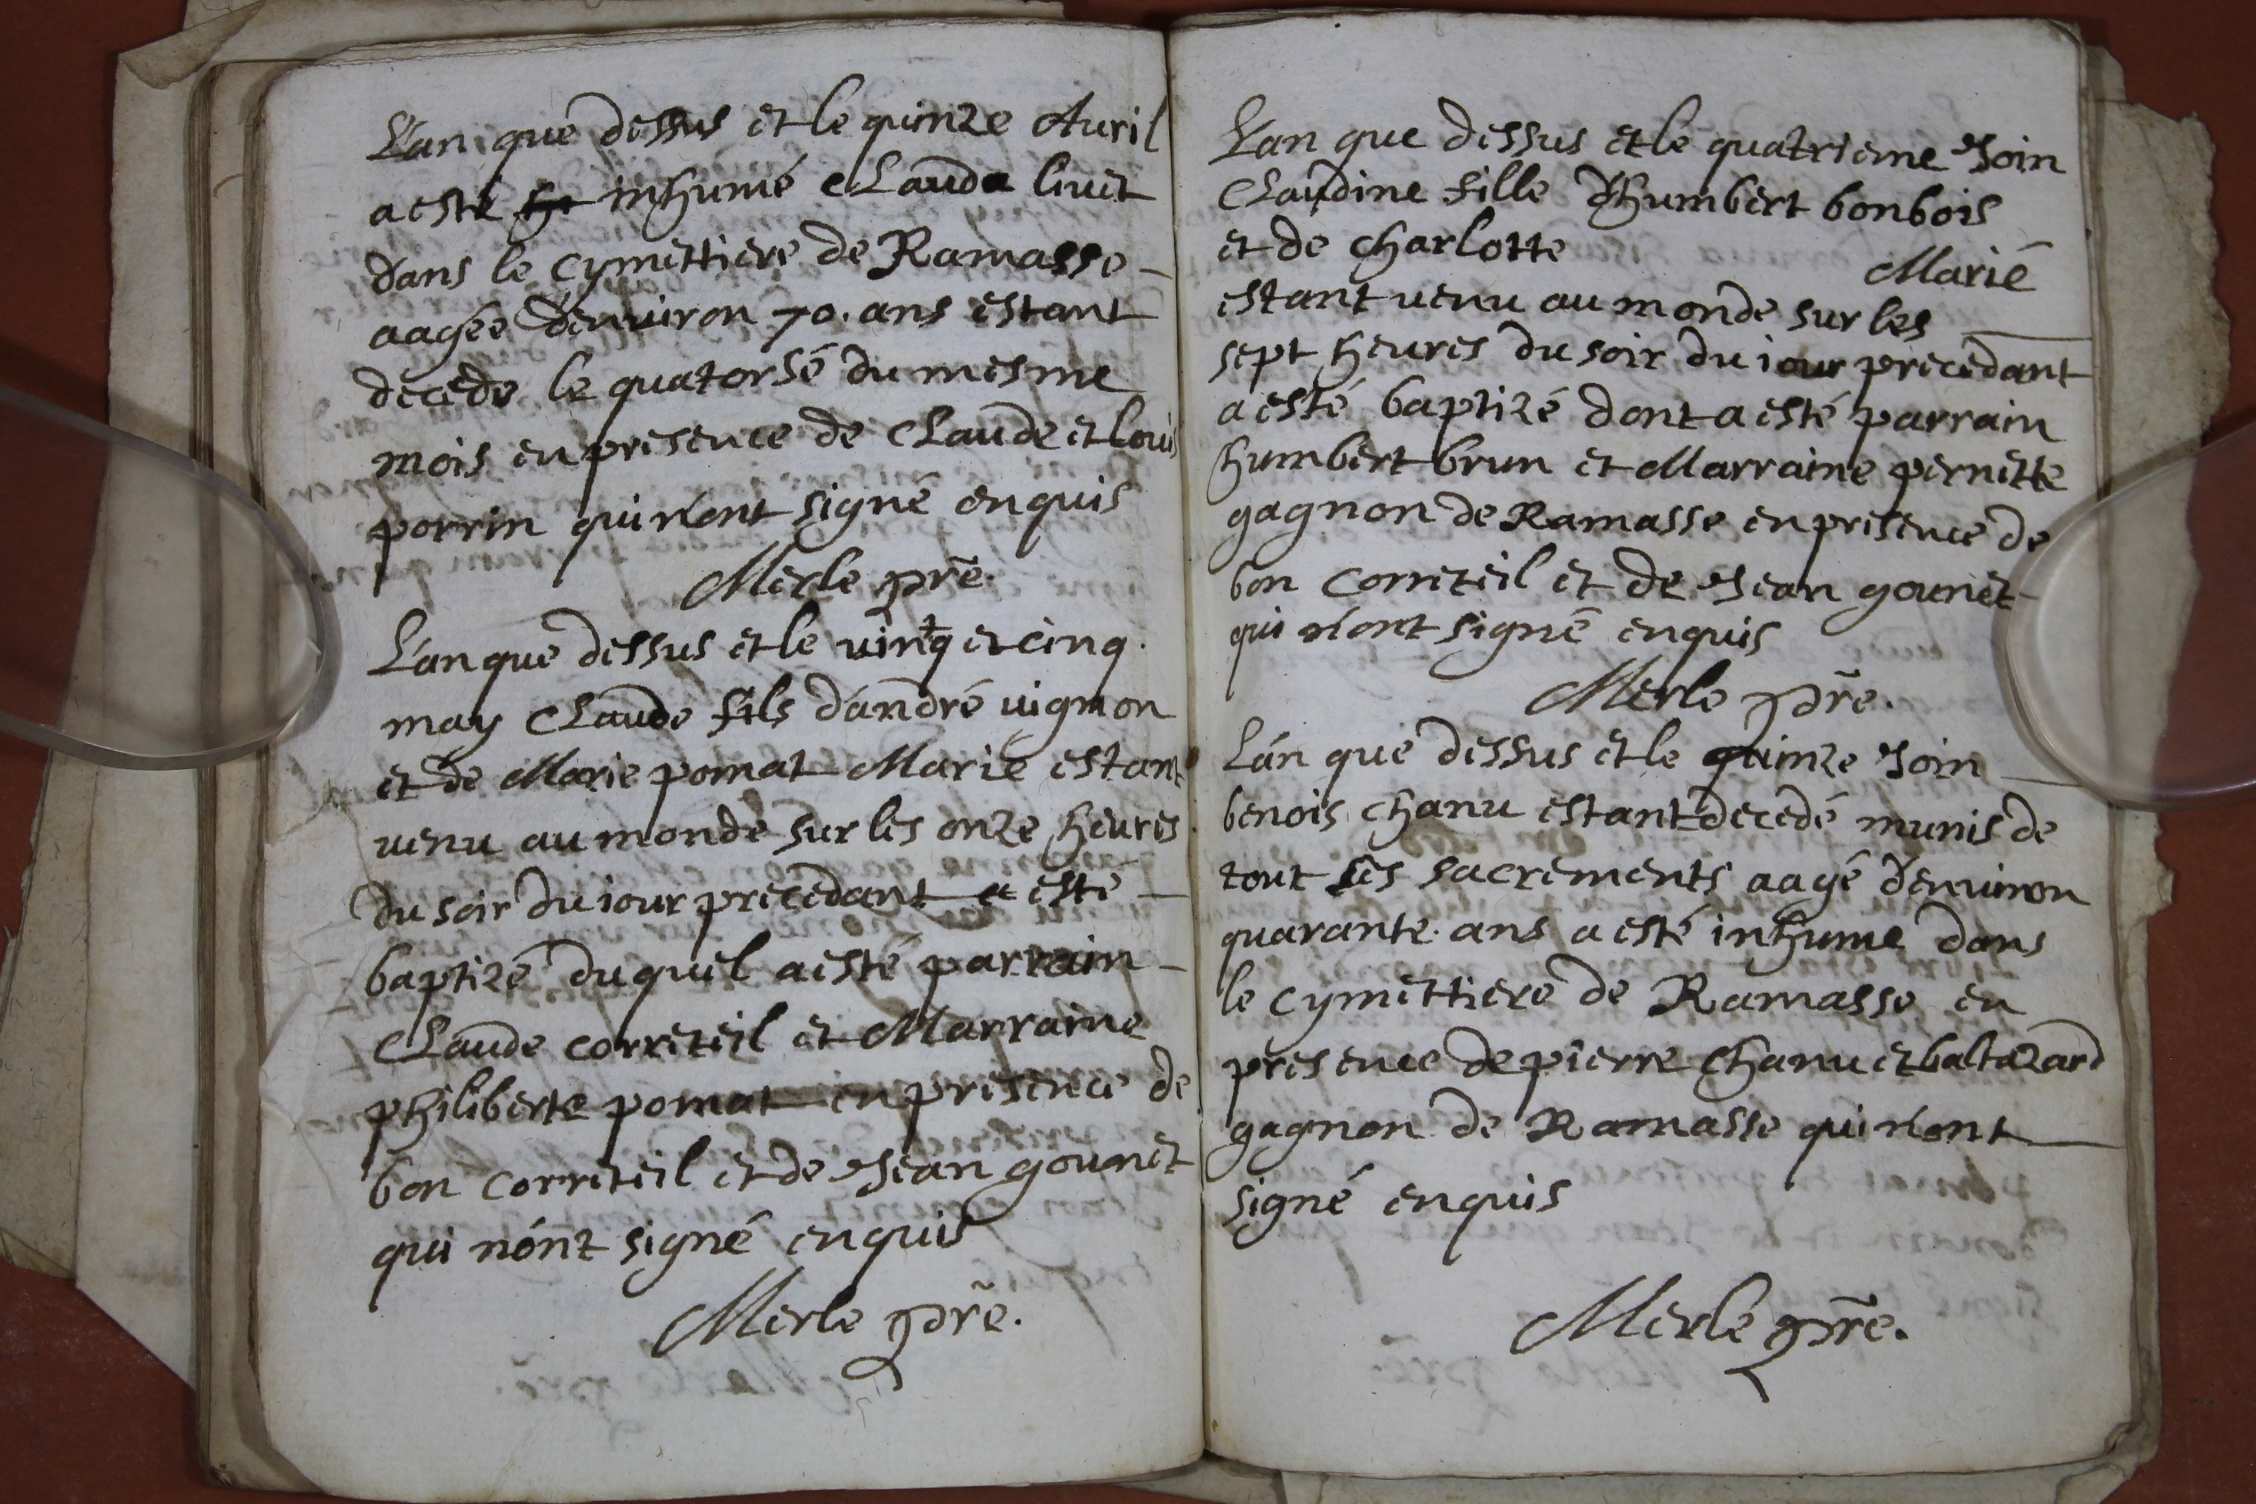 L'an que dessus et le quinze Auril
a esté inhumé Clauda liuet
dans le cymettiere de Ramasse
aagée denuiron 70. ans estant
decede le quatorsé du mesme
mois en presence de Claude et Louis
porrin qui n'ont signé enquis
Merle pr̃e.
L'an que dessus et le vingt et cinq.
may Claude fils d'andré uignon
et de Marie pomat Marié estant
venu au monde sur les onze heures
du soir du iour precedant a esté
baptizé duquel a esté parrain
Claude correteil et Marraine
philiberte pomat en presence de
bon correteil et de Jean gounet
qui n'ont signé enquis
Merle pr̃e.
L'an que dessus et le quatrieme Join
Claudine fille d'humbert bonbois
et de charlotte Marié
estant uenu au monde sur les
sept heures du soir du iour precedant
a esté baptizé dont a esté parrain
humbert brun et Marraine pernette
gagnon de Ramasse en presence de
bon correteil et de Jean gounet
qui n'ont signé enquis
Merle pr̃e.
L'an que dessus et le quinze Join
benois chanu estant decedé munis de
tout ses sacrements aagé denuiron
quarante ans a esté inhume dans
le cymettiere de Ramasse en
presence de pierre chanu et baltazard
gagnon de Ramasse qui n'ont
signé enquis
Merle pr̃e.